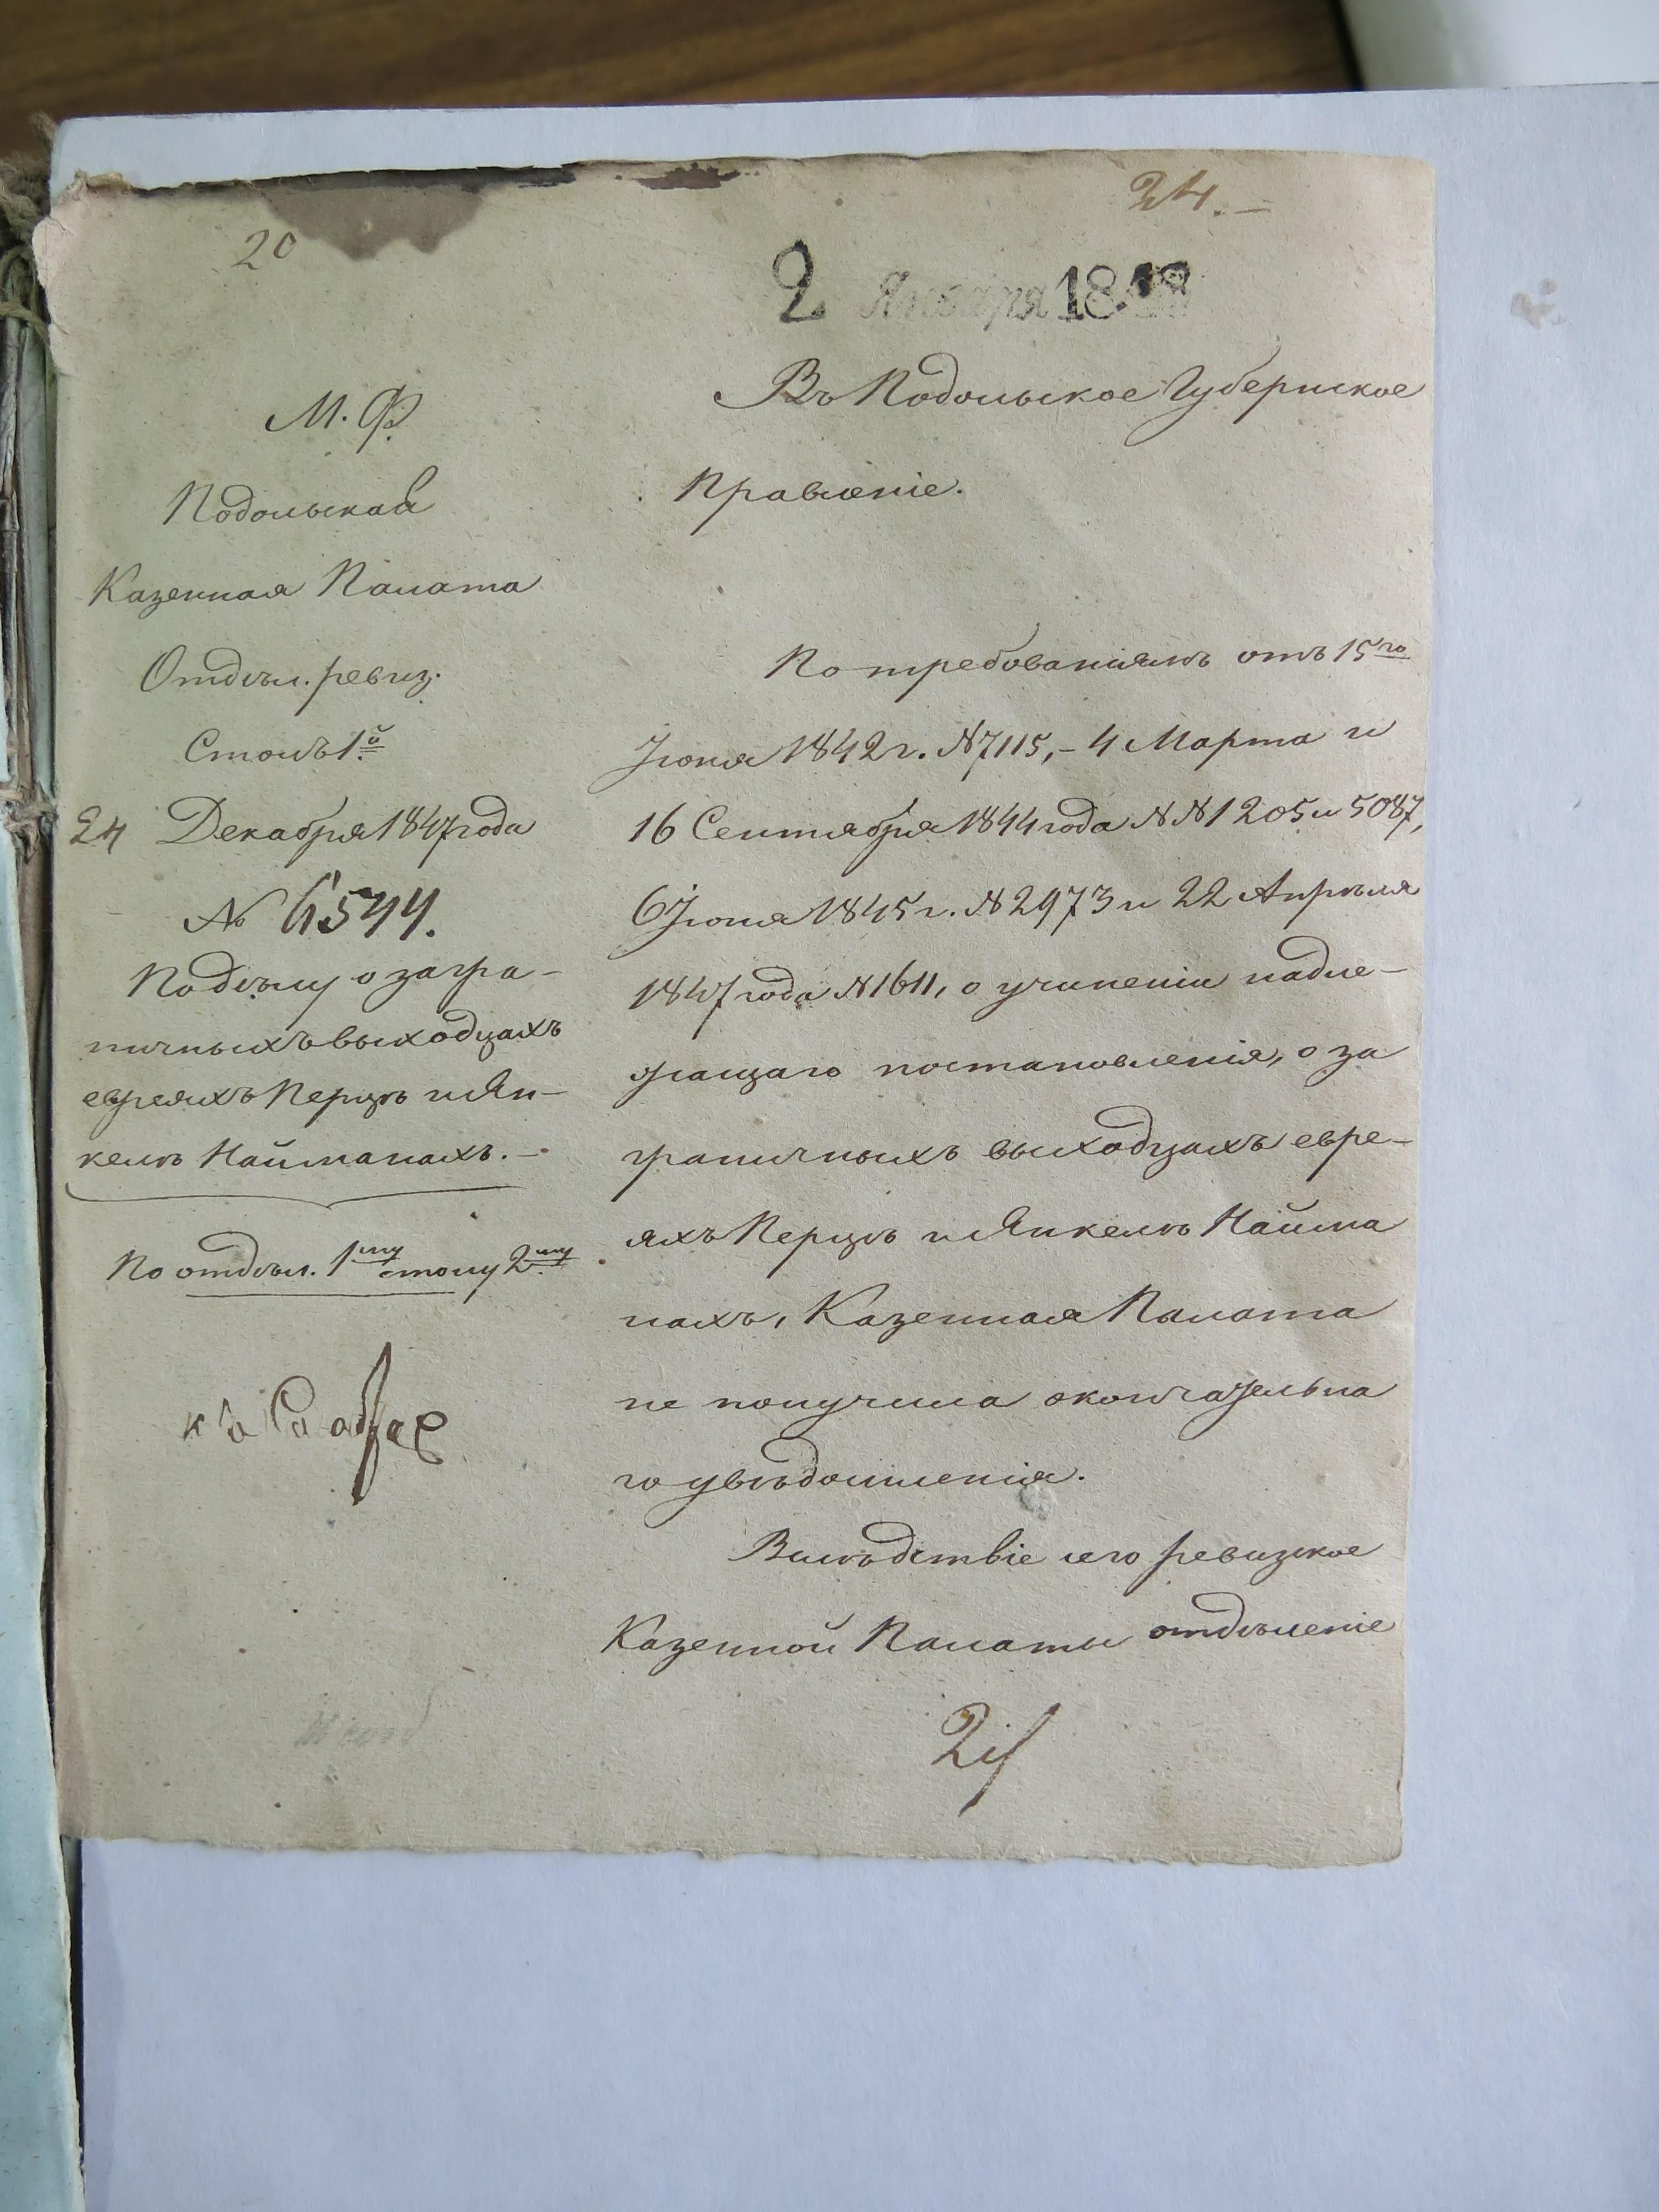 20
24.—
2 Января 1848
М. Ф.
Подольская
Казенная Палата
Отдѣл. ревиз.
Столъ 1й
24 Декабря 1847 года
№ 6544.
По дѣлу о загра-
ничныхъ выходцахъ
евреяхъ Перцѣ и Ян-
келѣ Найманахъ.—
По отдѣл. 1му столу 2му
Въ Подольское Губернское
Правленіе.
По требованіямъ отъ 15го
Іюня 1842 г. № 7115,- 4 Марта и
16 Сентября 1844 года №№ 1205 и 5087,
6 Іюня 1845 г. № 2973 и 22 Апрѣля
1847 года № 1611, о учиненіи надле-
жащаго постановленія, о за
граничныхъ выходцахъ евре-
яхъ Перцѣ и Янкелѣ Найма
нахъ, Казенная Палата
не получила окончательна
го увѣдомленія.
Вслѣдствіе сего ревизское
Казенной Палаты отдѣленіе